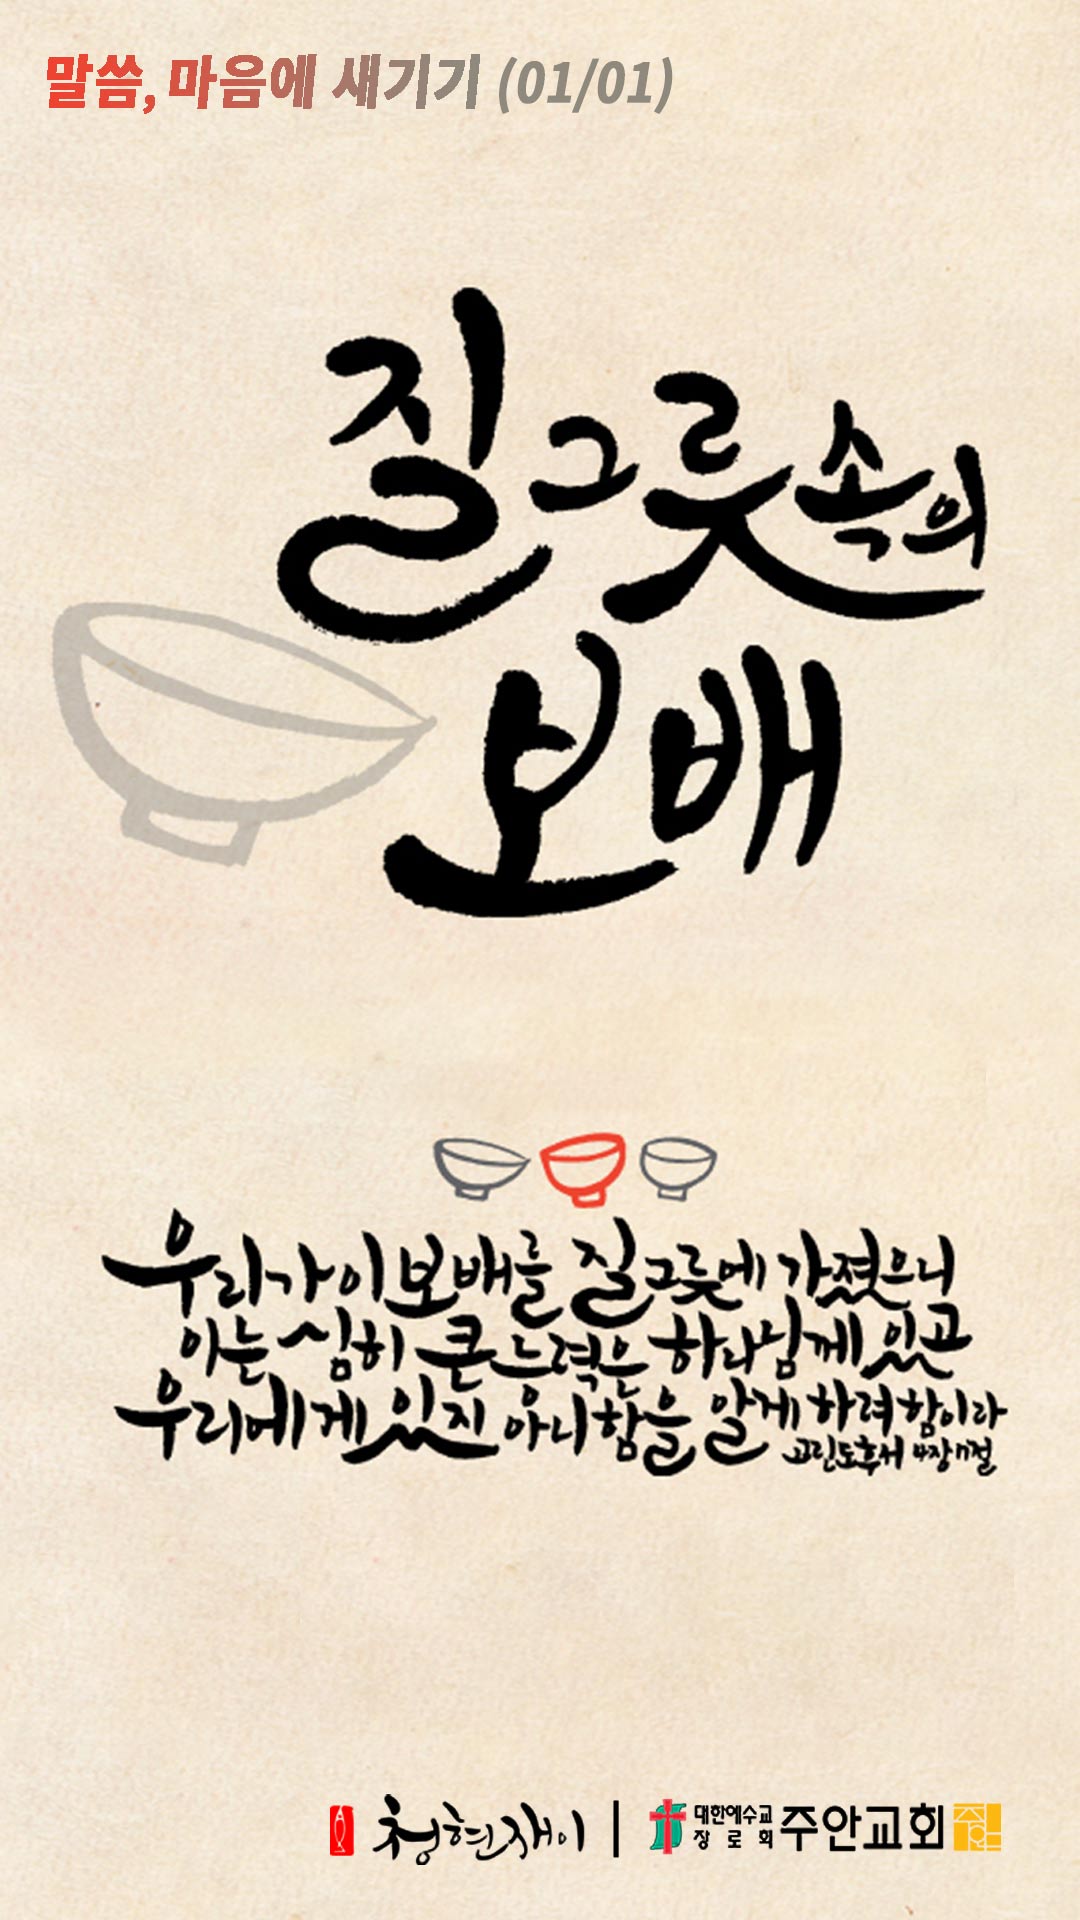 말씀, 마음에 새기기 (01/01)
질그릇속의
보배
우리가 이 보배를 질그릇에 가졌으니
이는 심히 큰 능력은 하나님께 있고
우리에게 있지 아니함을 알게 하려 함이라
고린도후서 4장 7절
청현재이 | 대한예수교
장로회 주안교회